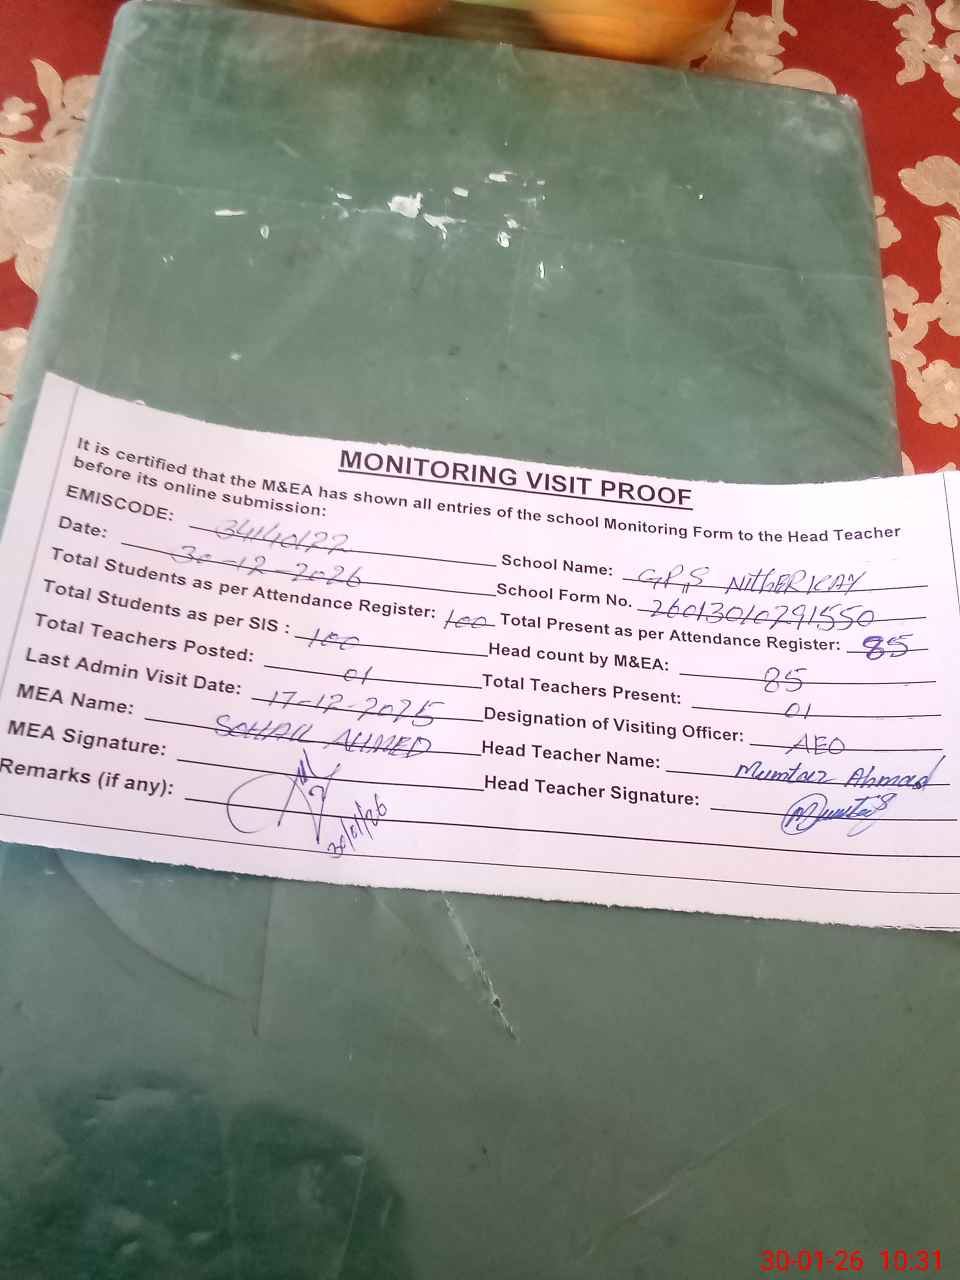 MONITORING VISIT PROOF
It is certified that the M&EA has shown all entries of the school Monitoring Form to the Head Teacher
before its online submission:
EMISCODE: 34140122 School Name: GPS NITHERKAY
Date: 30-12-2026 School Form No. 26013010291550
Total Students as per Attendance Register: 100 Total Present as per Attendance Register: 85
Total Students as per SIS : 100 Head count by M&EA: 85
Total Teachers Posted: 01 Total Teachers Present: 01
Last Admin Visit Date: 17-12-2025 Designation of Visiting Officer: AEO
MEA Name: SOHAIL AHMED Head Teacher Name: Mumtaz Ahmad
MEA Signature: Head Teacher Signature: Mumtaz
Remarks (if any):
30/01/26
30-01-26 10:31